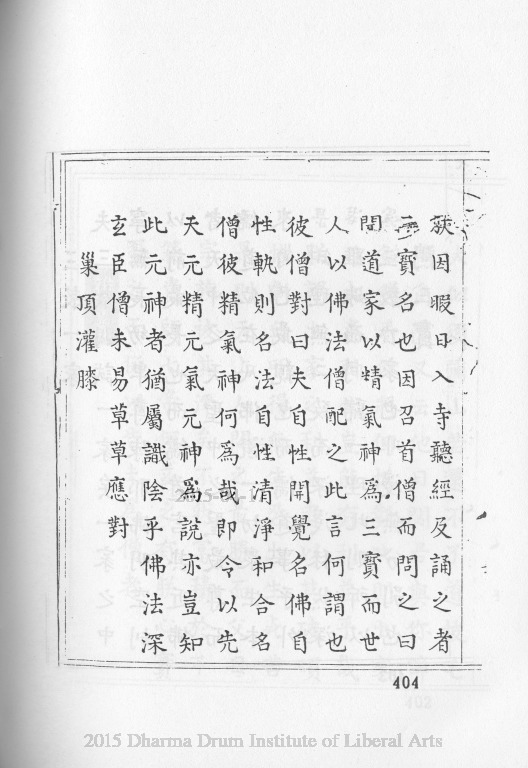 歟因暇日入寺聽經及誦之者
三寶名也因召首僧而問之曰
聞道家以精氣神爲三寳而世
人以佛法僧配之此言何謂也
彼僧對曰夫自性開覺名佛自
性軌則名法自性清淨和合名
僧彼精氣神何爲哉即令以先
天元精元氣元神爲說亦豈知
此元神者猶屬識陰乎佛法深
玄臣僧未易草草應對
巢頂灌膝
404
2015 Dharma Drum Institute of Liberal Arts